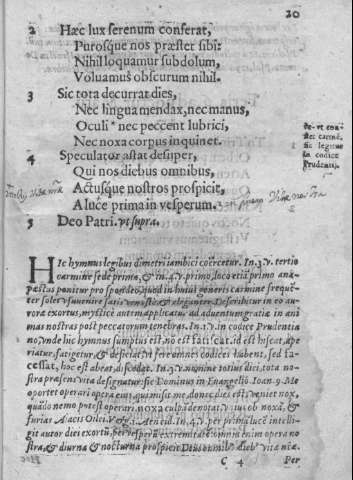 20
2 Hæc lux serenum conferat,
Purosque nos præstet sibi:
Nihil loquamur subdolum,
Voluamus obscurum nihil.
3 Sic tota decurrat dies,
Nec lingua mendax, nec manus,
Oculi * nec peccent lubrici,
Nec noxa corpus inquinet.
4 Speculator astat desuper,
Qui nos diebus omnibus,
Actusque nostros prospicit,
A luce prima in vesperum.
5 Deo Patri. vt supra.
carmē,
sic legitur
in codice
Prudentij.
HIc hymnus legibus dimetri iambici coërcetur. In .3. v. tertio
carmine sede prima, & in .4. v. primo, loco etiā primo ana-
pæstus ponitur pro spondeo, quod in huius generis carmine frequē-
ter solet vsuuenire satis venustè & eleganter. Describitur in eo au-
rora exortus, mysticè autem applicatur ad aduentum gratiæ in ani
mas nostras post peccatorum tenebras. In .1. v. in codice Prudentia
no, vnde hic hymnus sumptus est, no est fatiscat, id est hiscat, ape
riatur, fatigetur, & deficiat, vt
cessat, hoc est abeat, discedat. In .3. v. nomine totius diei, tota no-
stra præsens vita designatur: sic Dominus in Euangelio Ioan. 9. Me
oportet operari opera eius, qui misit me, donec dies est: veniet nox,
quādo nemo potest operari. noxa culpā denotat
furias Aiacis Oilei. Verg. 1. Aeneid. In .4. v. per prima luce intelli-
git autor diei exortū, per vesperā extremitatē: omnia enim opera no
stra, & diurna & nocturna prospicit Deus omnib9 dieb9 vitæ nr̄æ.
C 4 Per